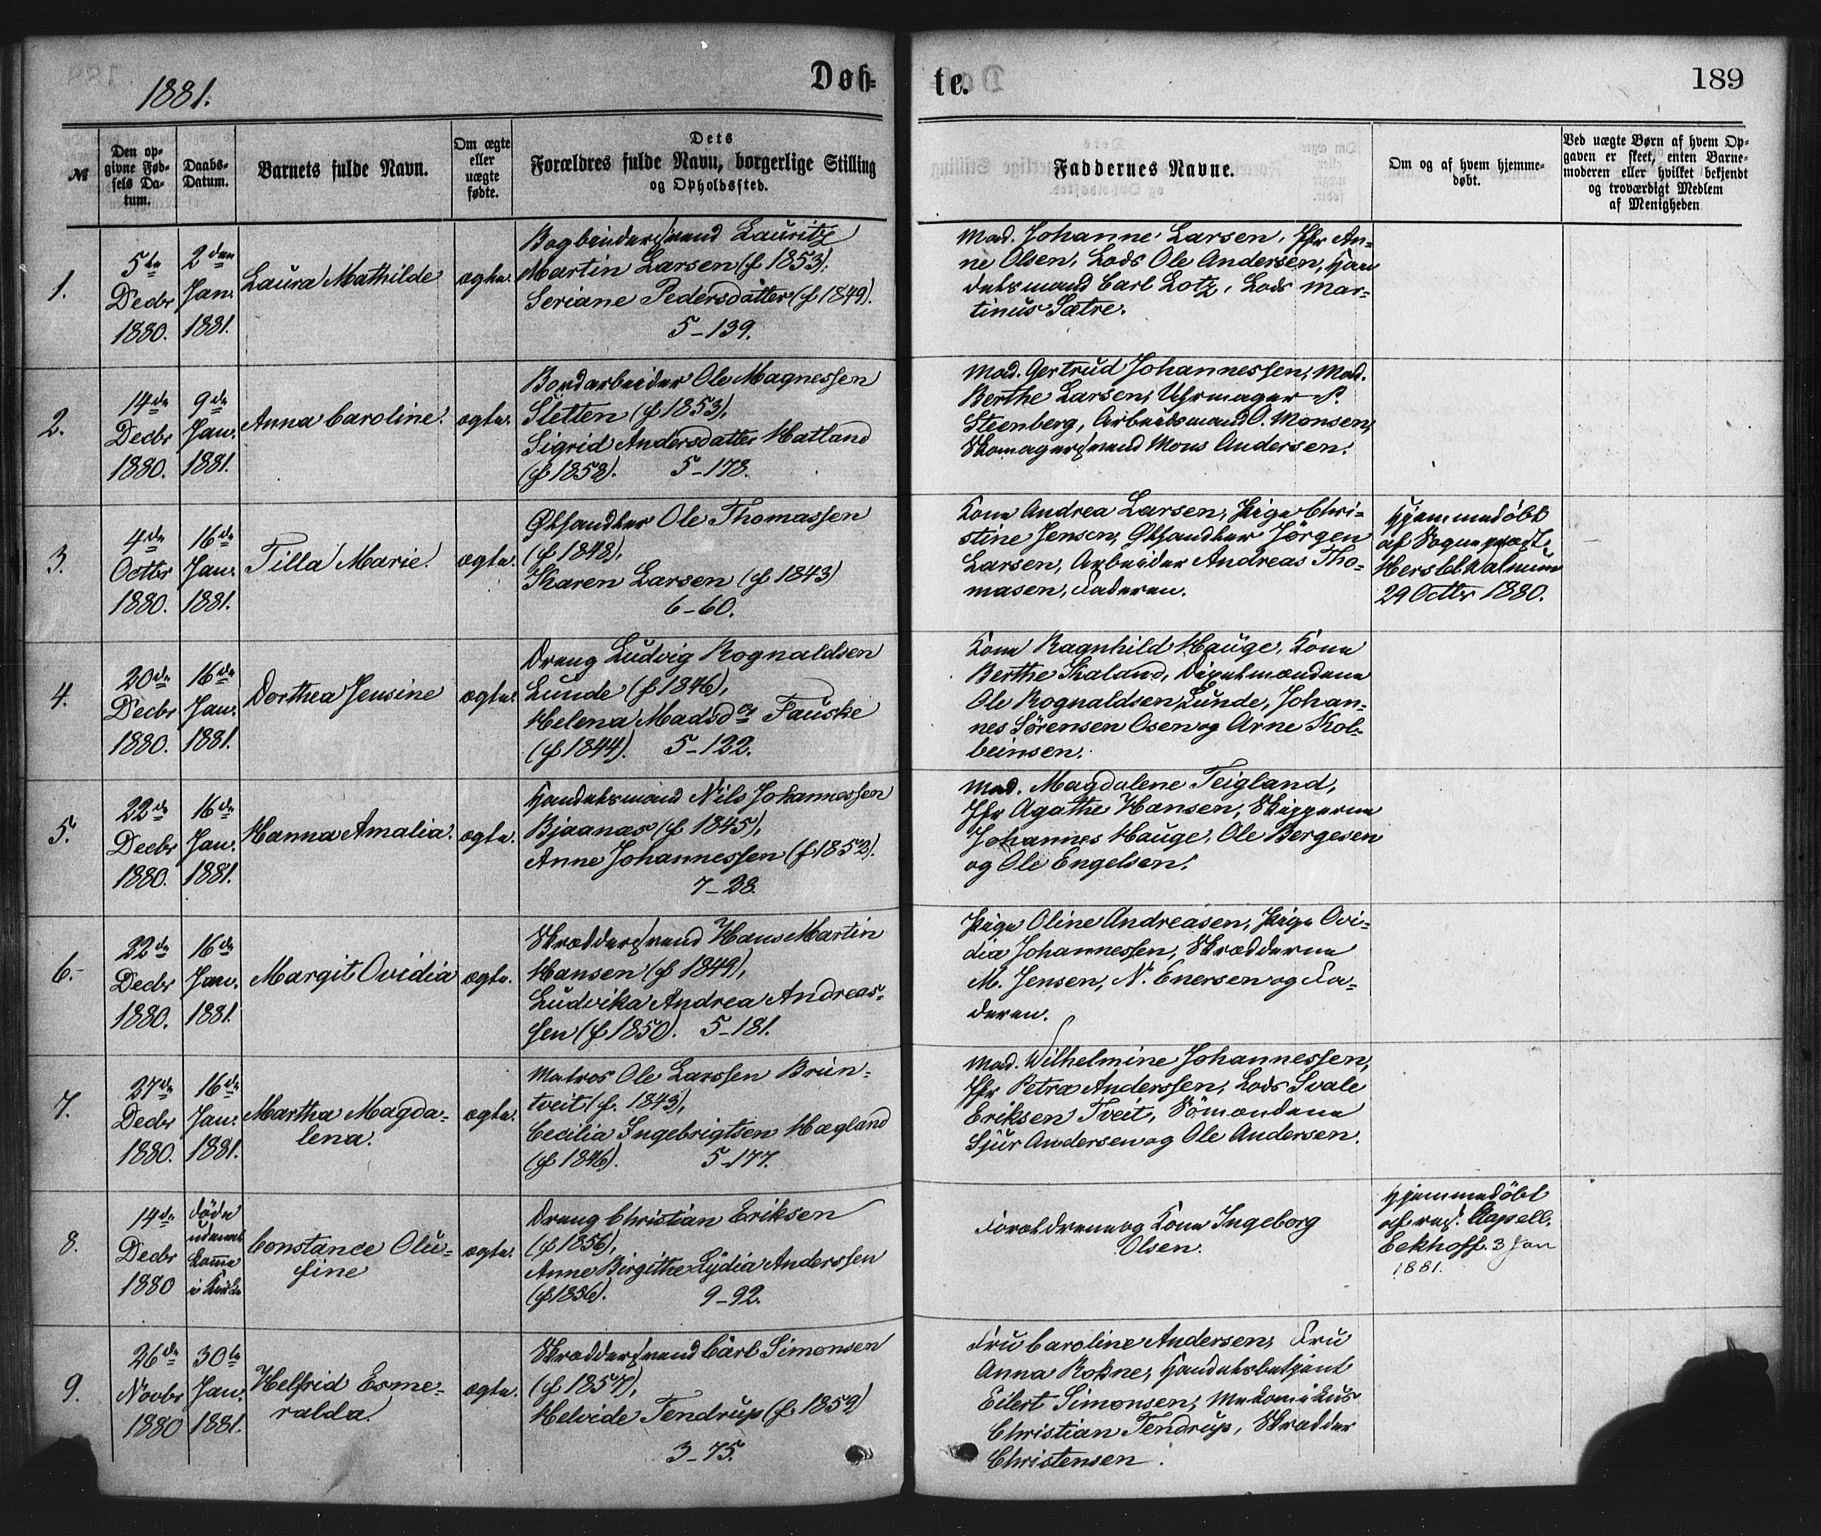 1881.
Døb-
te.
189
№
Den op-
givne Fød-
sels Da-
tum.
Daabs-
Datum.
Barnets fulde Navn.
Om ægte
eller
uægte
fødte.
Dets
Forældres fulde Navn, borgerlige Stilling
og Opholdssted.
Faddernes Navne.
Om og af hvem hjemme-
døbt.
Ved uægte Børn af hvem Op-
gaven er skeet, enten Barne-
moderen eller hvilket bekjendt
og troværdigt Medlem
af Menigheden
1.
5te
Decbr
1880.
2den
Jan.
1881.
Laura Mathilde
ægte.
Bogbindersvend Lauritz
Martin Larsen (f 1853).
Seriane Pedersdatter (f 1849).
5-139.
Mad. Johanne Larsen, Jfr An-
ne Olsen, Lods Ole Andersen, Han
delsmand Carl Lotz, Lods Mar-
tinus Sætre.
2.
14de
Decbr
1880.
9de
Jan.
1881.
Anna Caroline.
ægte.
Bordarbeider Ole Magnessen
Sletten (f 1853),
Sigrid Andersdatter Hatland
(f 1852). 5-178.
Mad. Gertrud Johannessen, Mad.
Berthe Larsen, Uhrmager P.
Steenberg, Arbeidsmand O. Monsen,
Skomagersvend Mons Andersen.
3.
4de
Octbr
1880.
16de
Jan.
1881.
Tilla Marie.
ægte.
Ølhandler Ole Thomassen
(f 1848),
Karen Larsen (f 1843)
6-60.
Kone Andrea Larsen, Pige Chri-
stine Jensen, Ølhandler Jørgen
Larsen, Arbeider Andreas Tho-
masen, Faderen.
Hjemmedøbt
af Sogneprest
Hersleb Walnum
29 Octbr 1880.
4.
20de
Decbr
1880.
16de
Jan.
1881.
Dorthea Jensine
ægte.
Dreng Ludvig Rognaldsen
Lunde (f 1846),
Helena Madsdr Fauske
(f 1844). 5-122.
Kone Ragnhild Hauge, Kone
Berthe Kaland,
Ole Rognaldsen Lunde, Johan-
nes Sørensen Osen og Arne Kol-
beinsen.
5.
22de
Decbr
1880.
16de
Jan.
1881.
Hanna Amalia.
ægte.
Handelsmand Nils Johannessen
Bjaanæs (f 1845),
Anne Johannessen (f 1852).
7-28.
Mad. Magdalene Teigland,
Jfr Agathe Hansen, Skipperne
Johannes Hauge, Ole Bergesen
og Ole Engelsen.
6.
22de
Decbr
1880.
16de
Jan.
1881.
Margit Ovidia
ægte.
Skræddersvend Hans Martin
Hansen (f 1849),
Ludvika Andrea Andreas-
sen (f 1850). 5-181.
Pige Oline Andreasen, Pige Ovi-
dia Johannessen, Skrædderne
M. Jensen, N. Enersen og Fa-
deren.
7.
27de
Decbr
1880.
16de
Jan.
1881.
Martha Magda-
lena.
ægte.
Matros Ole Larssen Brun-
tveit (f. 1843),
Cecilia Ingebrigtsen Hægland
(f 1846). 5-177.
Mad. Wilhelmine Johannessen,
Jfr Petra Anderssen, Lods Svale
Eriksen Tveit, Sømændene
Sjur Andersen og Ole Andersen.
8.
14de
Decbr
1880
Døde
uden at
komme
i Kirke
Constance Olu-
fine
ægte.
Dreng Christian Eriksen
(f 1856),
Anne Birgithe Lydia Anderssen
(f 1856). 9-92.
Forældrene og Kone Ingeborg
Olsen.
Hjemmedøbt
af res. Capell.
Eckhoff 3 Jan
1881.
9.
26de
Novbr
1880
30te
Jan.
1881.
Helfrid Esme-
ralda.
ægte.
Skræddersvend Carl Simonsen
(f 1857),
Helvide Tendrup (f 1859)
3-75.
Fru Caroline Andersen, Fru
Anna Rokne, Handelsbetjent
Eilert Simonsen, Mekanikus
Christian Tendrup, Skrædder
Christensen.